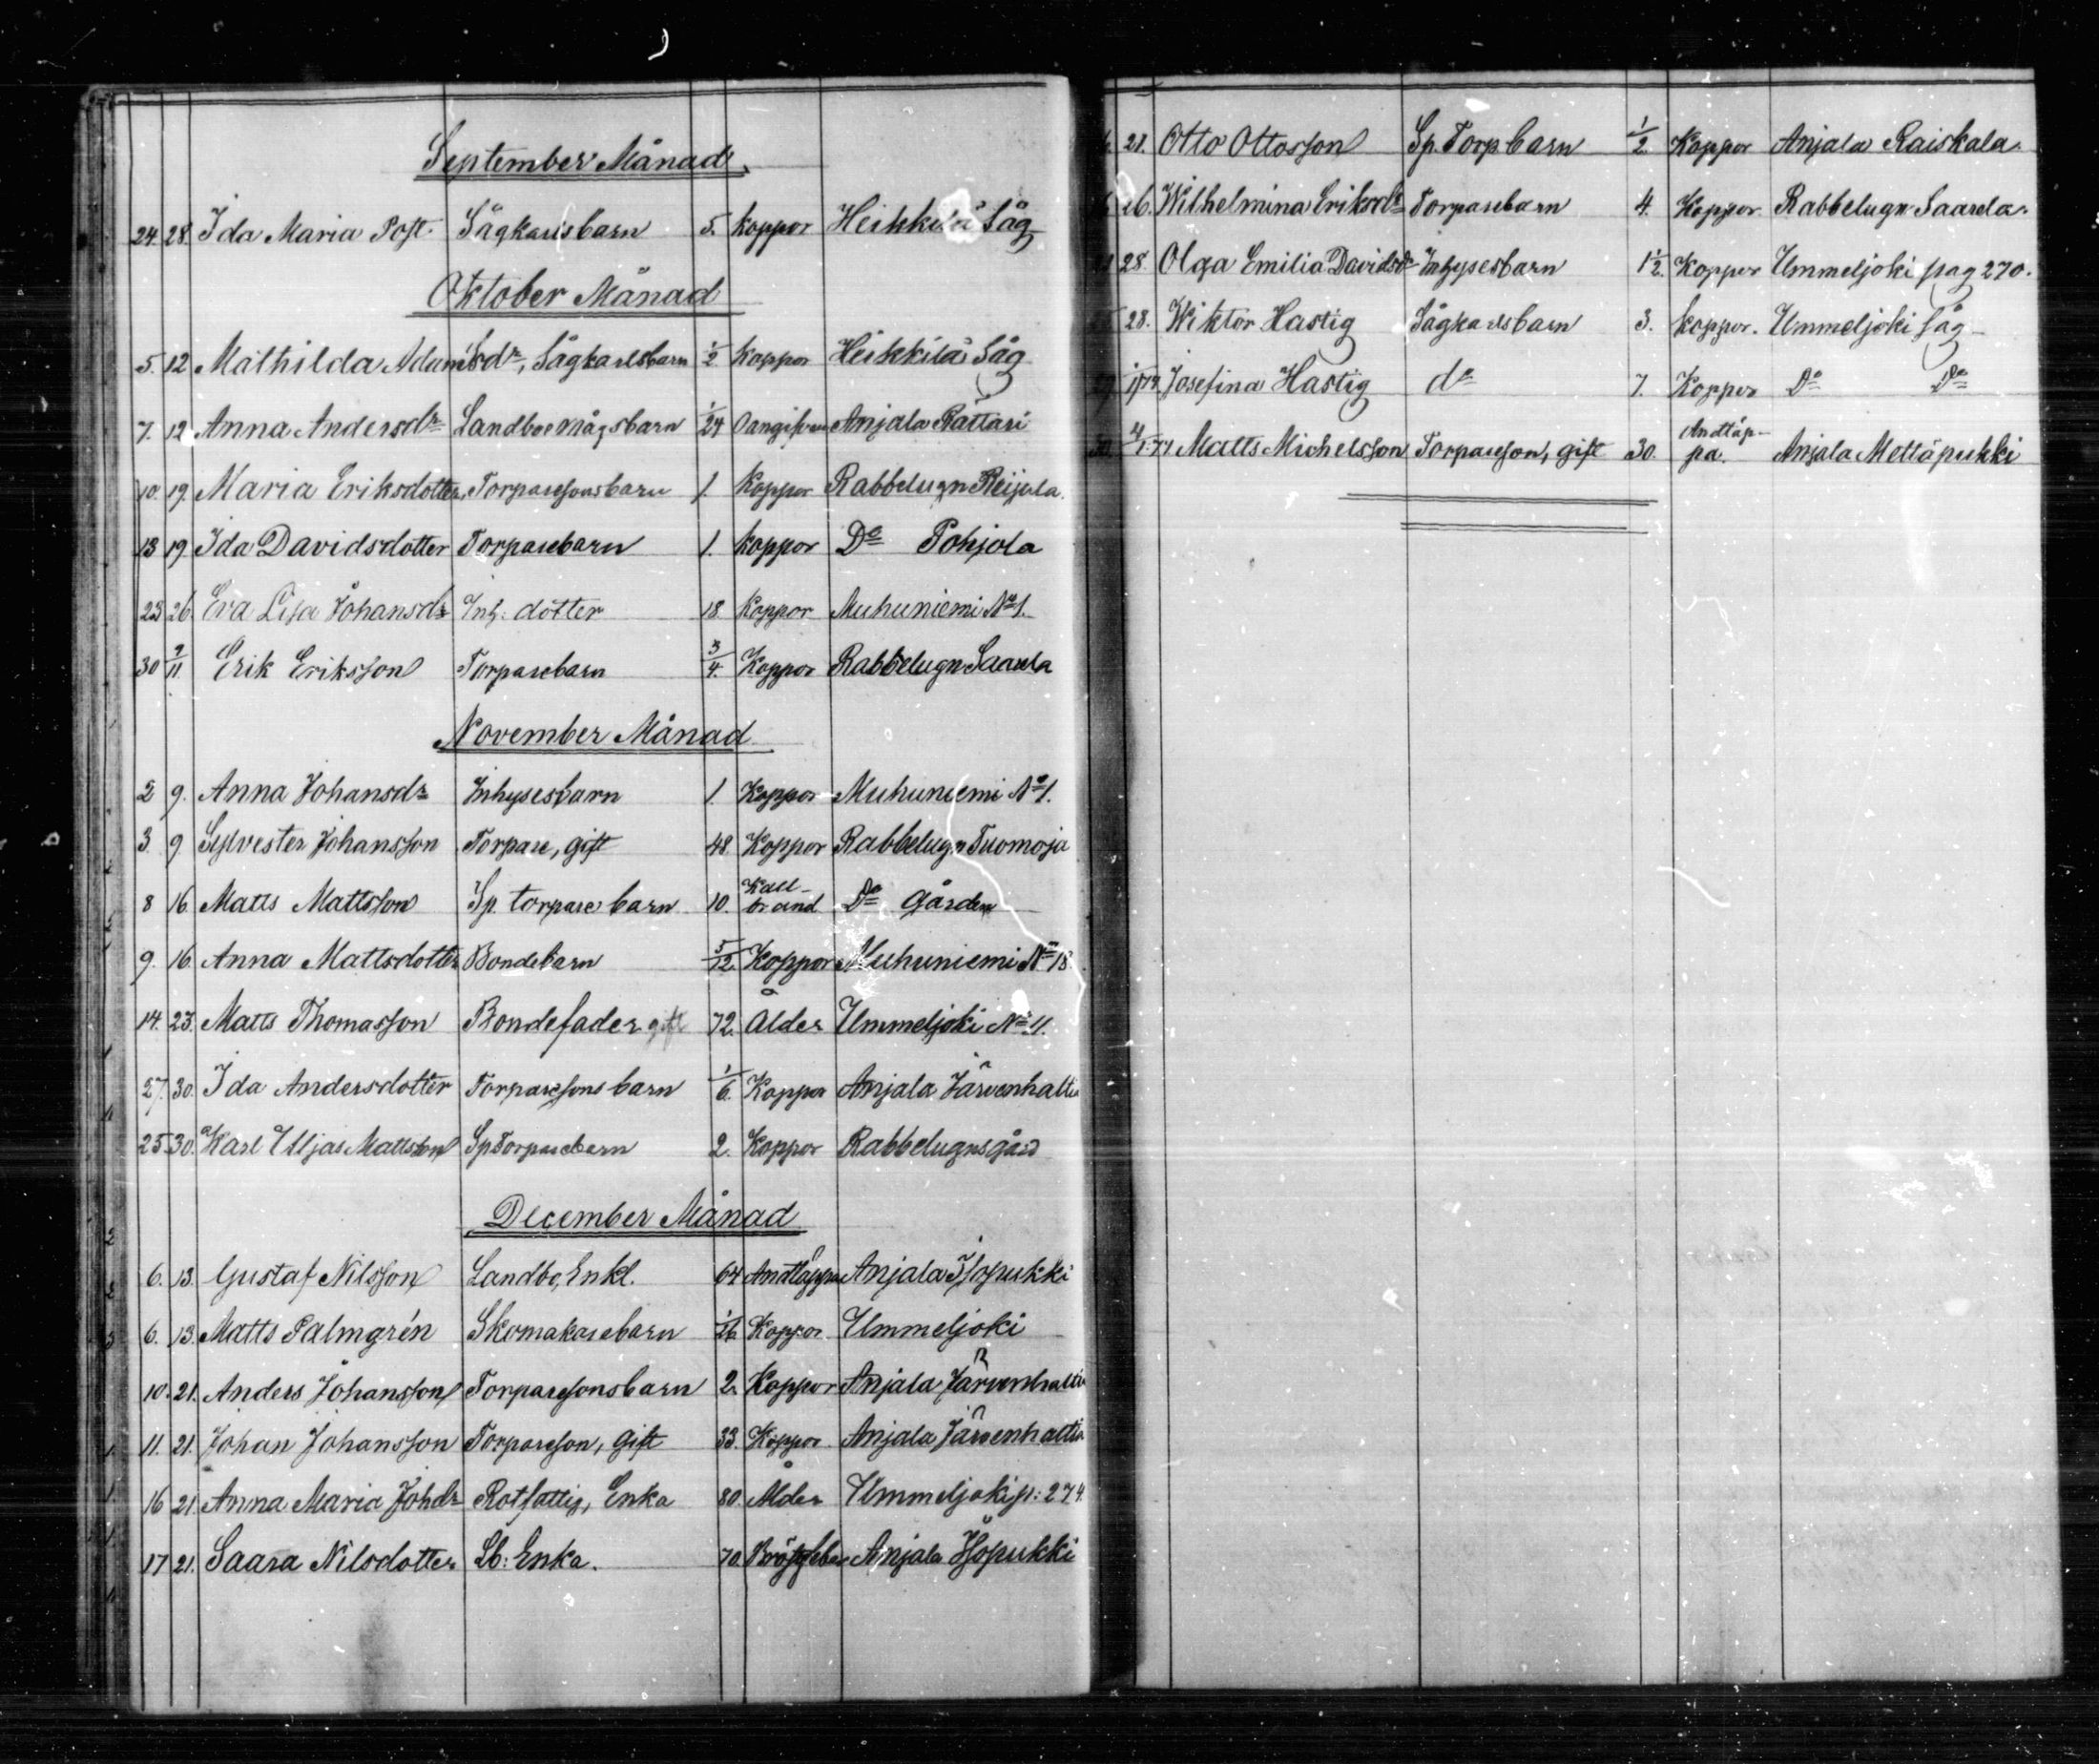 September Månad.
24 28. Ida Maria Post. Sågkarlsbarn 5. Koppor Heikkilä Såg
Oktober Månad
5. 12 Mathilda Adamsdr, Sågkarlsbarn 1/2 Koppor Heikkilä Såg
7. 12 Anna Andersdr Landboemågsbarn 1/24 Oangifven Anjala Rättäri
10. 19. Maria Eriksdotter, Torparesonsbarn 1. Koppor Rabbelugn Reijula.
13 19. Ida Davidsdotter Torparebarn 1. Koppor Do Pohjola
23 26. Eva Lisa Johansdr Inh: dotter 18 Koppor Muhuniemi No 1.
30 9/11. Erik Eriksson Torparebarn 3/4. Koppor Rabbelugn Saarela
November Månad
2 9. Anna Johansdr Inhysesbarn 1. Koppor Muhuniemi No 1.
3. 9 Sylvester Johansson Torpare, gift 48. Koppor Rabbelugn Tuomoja
8 16 Matts Mattsson Sp. torparebarn 10. Kall-
brand Do Gården
9. 16. Anna Mattsdotter Bondebarn 5/12. Koppor Muhuniemi No 18.
14. 23. Matts Thomasson Bondefader gift 72. Ålder Ummeljoki No 11.
27. 30. Ida Andersdotter Torparesonsbarn 1/6. Koppor Anjala Järvenhaltia
25 30. Karl Uljas Mattsson Sp Torparebarn 2. Koppor Rabbelugnsgård
December Månad
6. 13. Gustaf Nilsson Landbo, Enkl. 64 Andtäppa Anjala Isopukki
6. 13. Matts Palmgrén Skomakarebarn Koppor Ummeljoki
10. 21. Anders Johansson Torparesonsbarn 2. Koppor Anjala Järvenhaltia
11. 21. Johan Johansson Torpareson, gift 33. Koppor Anjala Järvenhaltia
16 21. Anna Maria Johdr Rotfattig, Enka 80. Ålder Ummeljoki p: 274.
17 21. Saara Nilsdotter Lb: Enka. 70. Bröstfeber Anjala Isopukki
21. Otto Ottosson Sp. Torpbarn 1/2. Koppor Anjala Raiskala.
26. Wilhelmina Eriksdr Torparebarn 4. Koppor. Rabbelugn Saarela.
28. Olga Emilia Davidsdr Inhysesbarn 1 1/2. Koppor Ummeljoki pag 270.
28. Wiktor Hastig Sågkarlsbarn 3. Koppor. Ummeljoki Såg
Josefina Hastig do 7. Koppor Do Do
Matts Michelsson Torpareson, gift 30. Andtäp-
pa. Anjala Mettäpukki